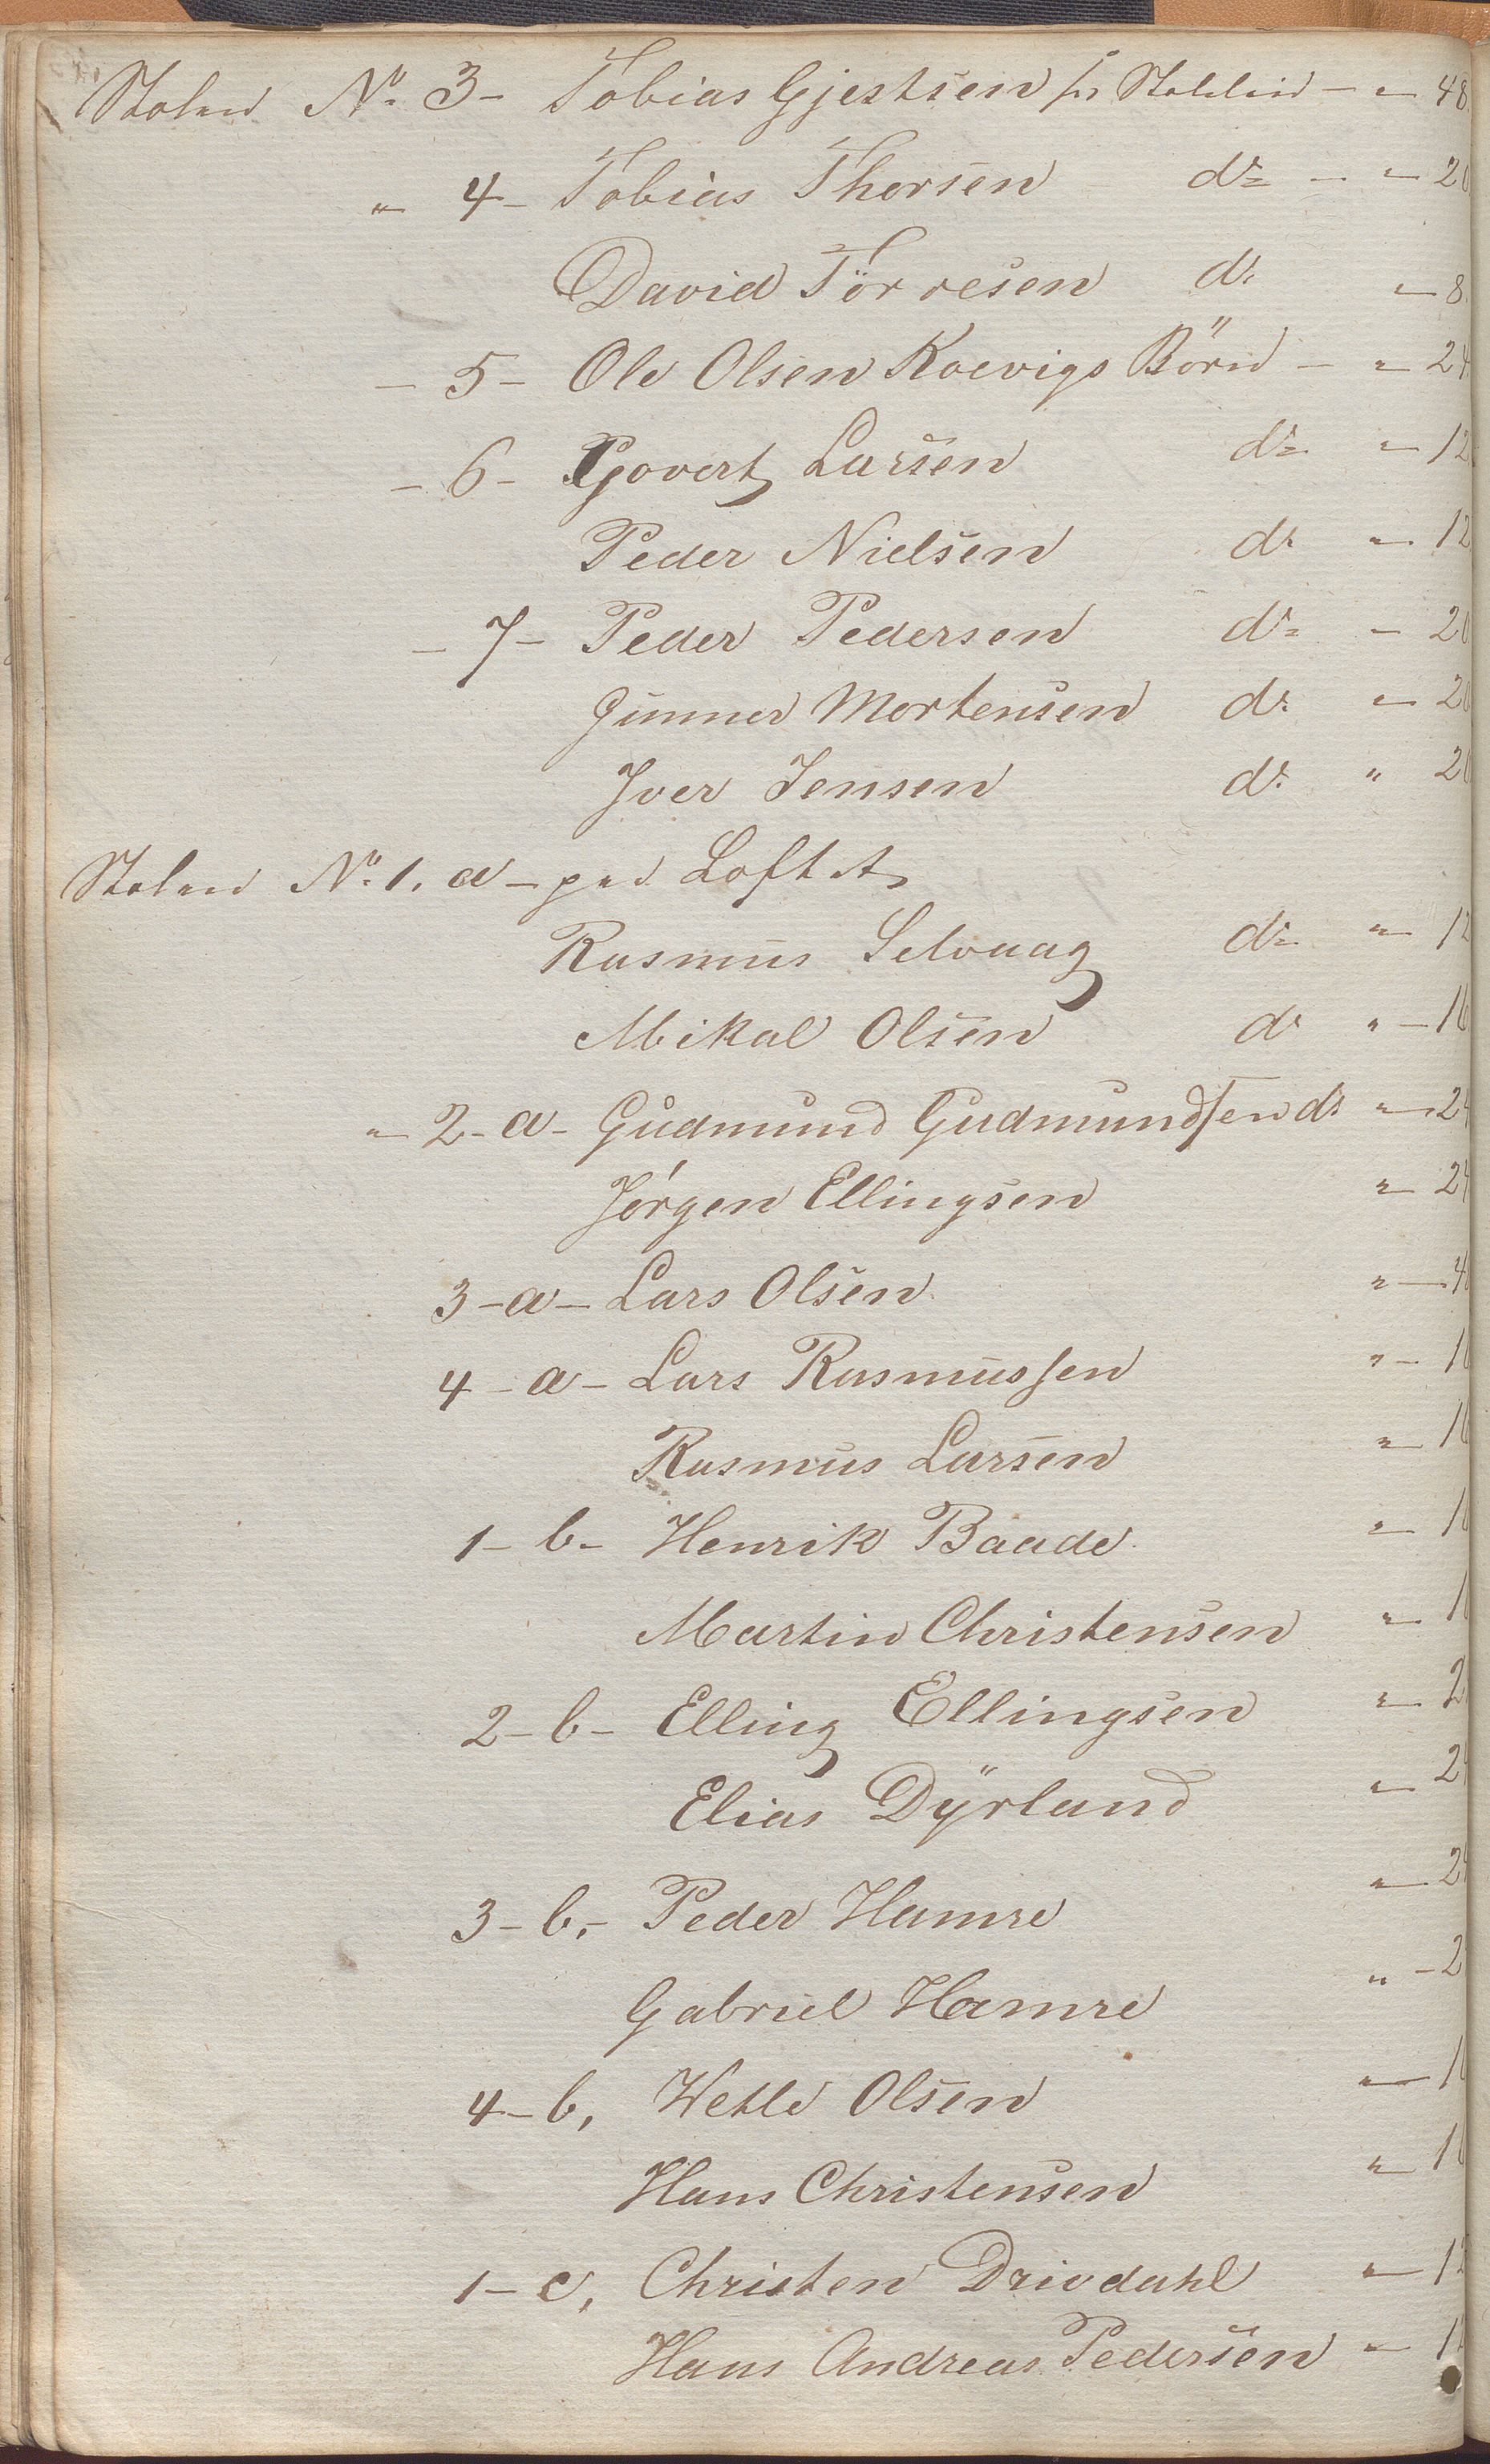 Stolen No. 3 - Tobias Gjestsen for Stoleleie - " - 48.
" 4 - Tobias Thorsen do - " - 20
David Törresen do " - 8.
- 5 - Ole Olsen Roevigs Börn - " - 24
- 6 - Govert Larsen do " - 12
Peder Nielsen do " - 12
- 7 - Peder Pedersen do - 20
Gunner Mortensen do " - 20
Iver Jensen do " 20
Stolen No. 1. a - paa Loftet
Rasmus Selvaag do " - 12
Mikal Olsen do " - 16
" - 2 - a - Gudmund Gudmundsen do " - 24
Jörgen Ellingsen " - 24
3 - a - Lars Olsen "
4 - a - Lars Rasmussen "
Rasmus Larsen "
1 - b - Henrik Baade "
Martin Christensen "
2 - b - Elling Ellingsen "
Elias Dyrland "
3 - b, - Peder Hamre "
Gabriel Hamre "
4 - b, Wetle Olsen "
Hans Christensen "
1 - c, Christen Drivdahl "
Hans Andreas Pedersen "